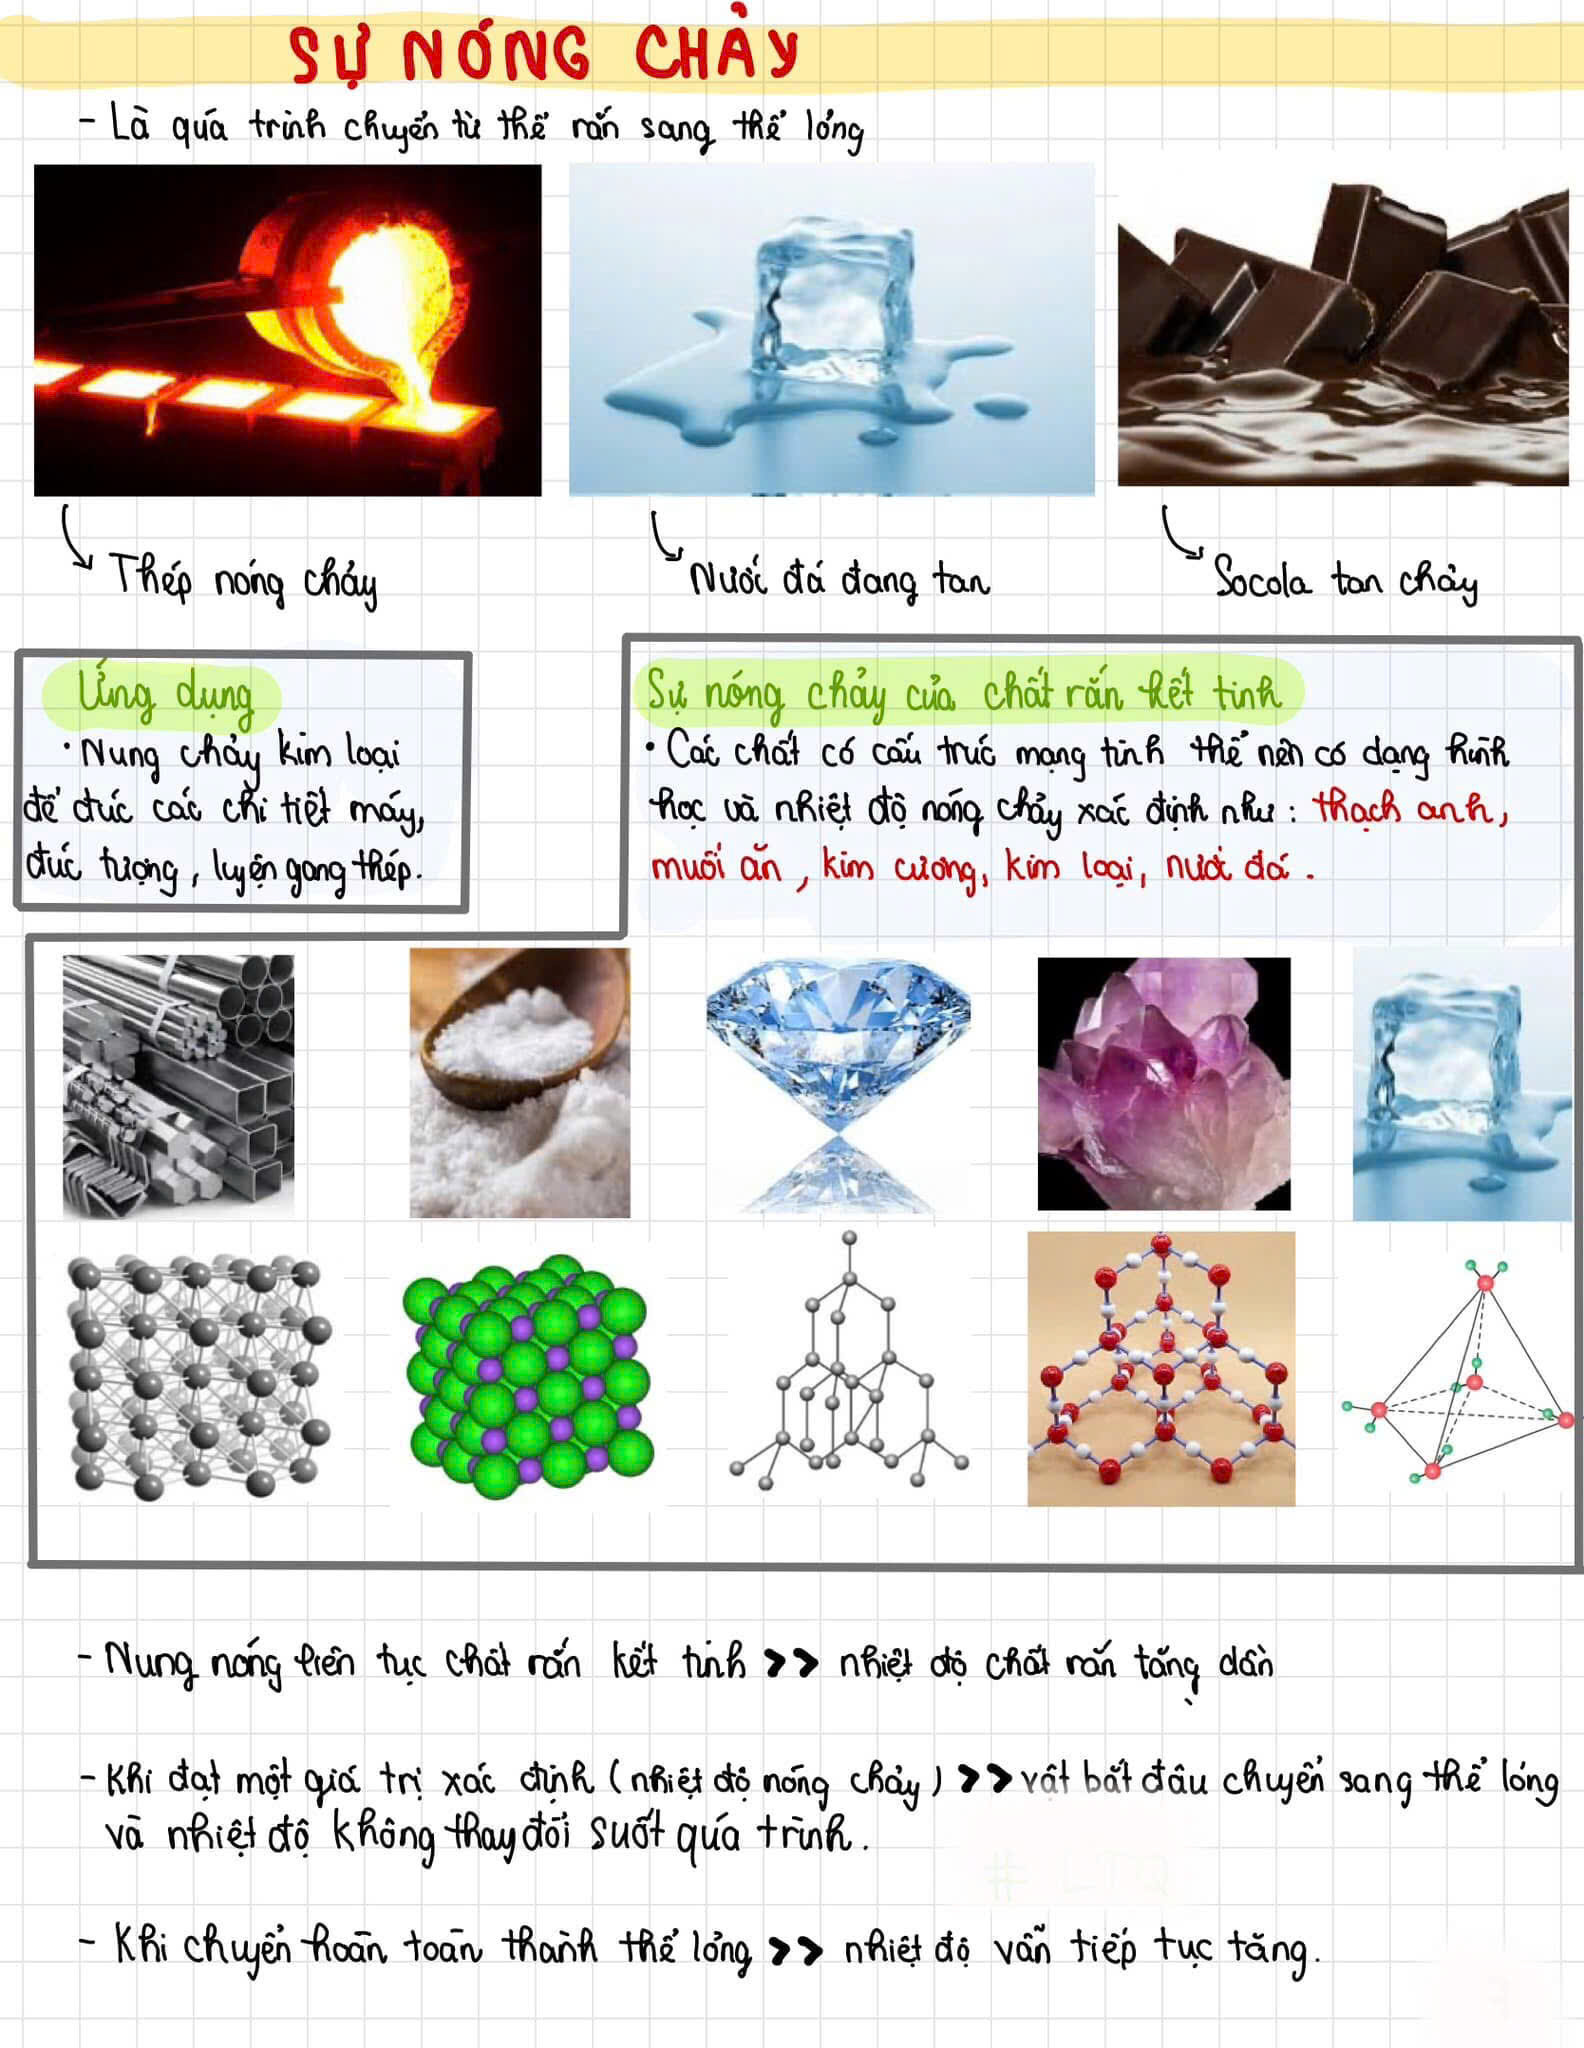 SỰ NÓNG CHẢY
- Là quá trình chuyển từ thể rắn sang thể lỏng
Thép nóng chảy
Nước đá đang tan
Socola tan chảy
Ứng dụng
• Nung chảy kim loại
để đúc các chi tiết máy,
đúc tượng, luyện gang thép.
Sự nóng chảy của chất rắn kết tinh
• Các chất có cấu trúc mạng tinh thể nên có dạng hình
học và nhiệt độ nóng chảy xác định như: thạch anh,
muối ăn, kim cương, kim loại, nước đá.
- Nung nóng liên tục chất rắn kết tinh >> nhiệt độ chất rắn tăng dần
- Khi đạt một giá trị xác định (nhiệt độ nóng chảy) >> vật bắt đầu chuyển sang thể lỏng
và nhiệt độ không thay đổi suốt quá trình.
# LTQ
- Khi chuyển hoàn toàn thành thể lỏng >> nhiệt độ vẫn tiếp tục tăng.